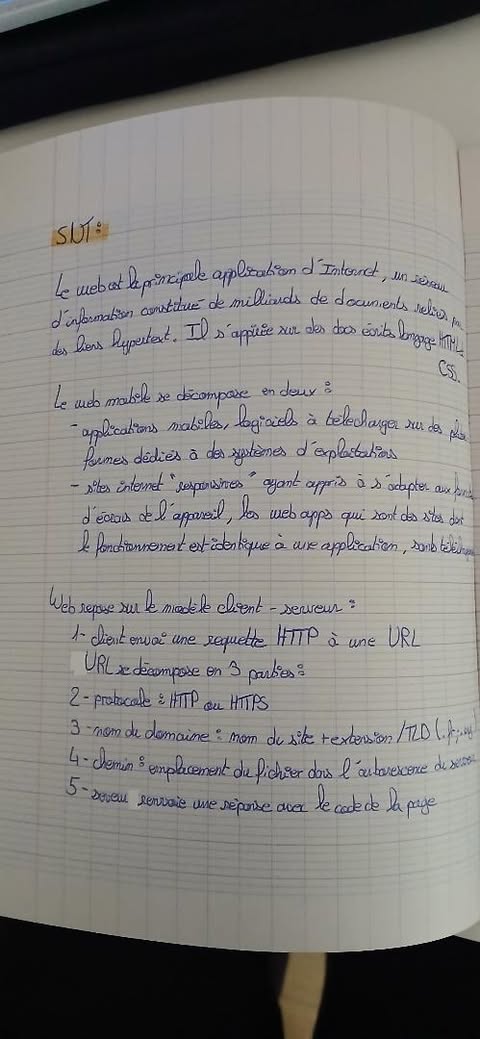 SNT :
Le web est la principale application d'Internet, un réseau
d'information constitué de milliards de documents reliés par
des liens hypertext. Il s'appuie sur des docs écrits langage HTML
CSS.
Le web mobile se décompose en deux :
- applications mobiles, logiciels à télécharger sur des plate
formes dédiés à des systèmes d'exploitations
- sites internet "responsives" ayant appris à s'adapter aux
d'écrans de l'appareil, les web apps qui sont des sites dont
le fonctionnement est identique à une application, sans
Web repose sur le modèle client-serveur :
1- client envoi une requette HTTP à une URL
URL se décompose en 3 parties :
2- protocole : HTTP ou HTTPS
3- nom du domaine : nom du site + extension/TLD
4- chemin : emplacement du fichier dans l'autorescence du serveur
5- serveur renvoie une réponse avec le code de la page